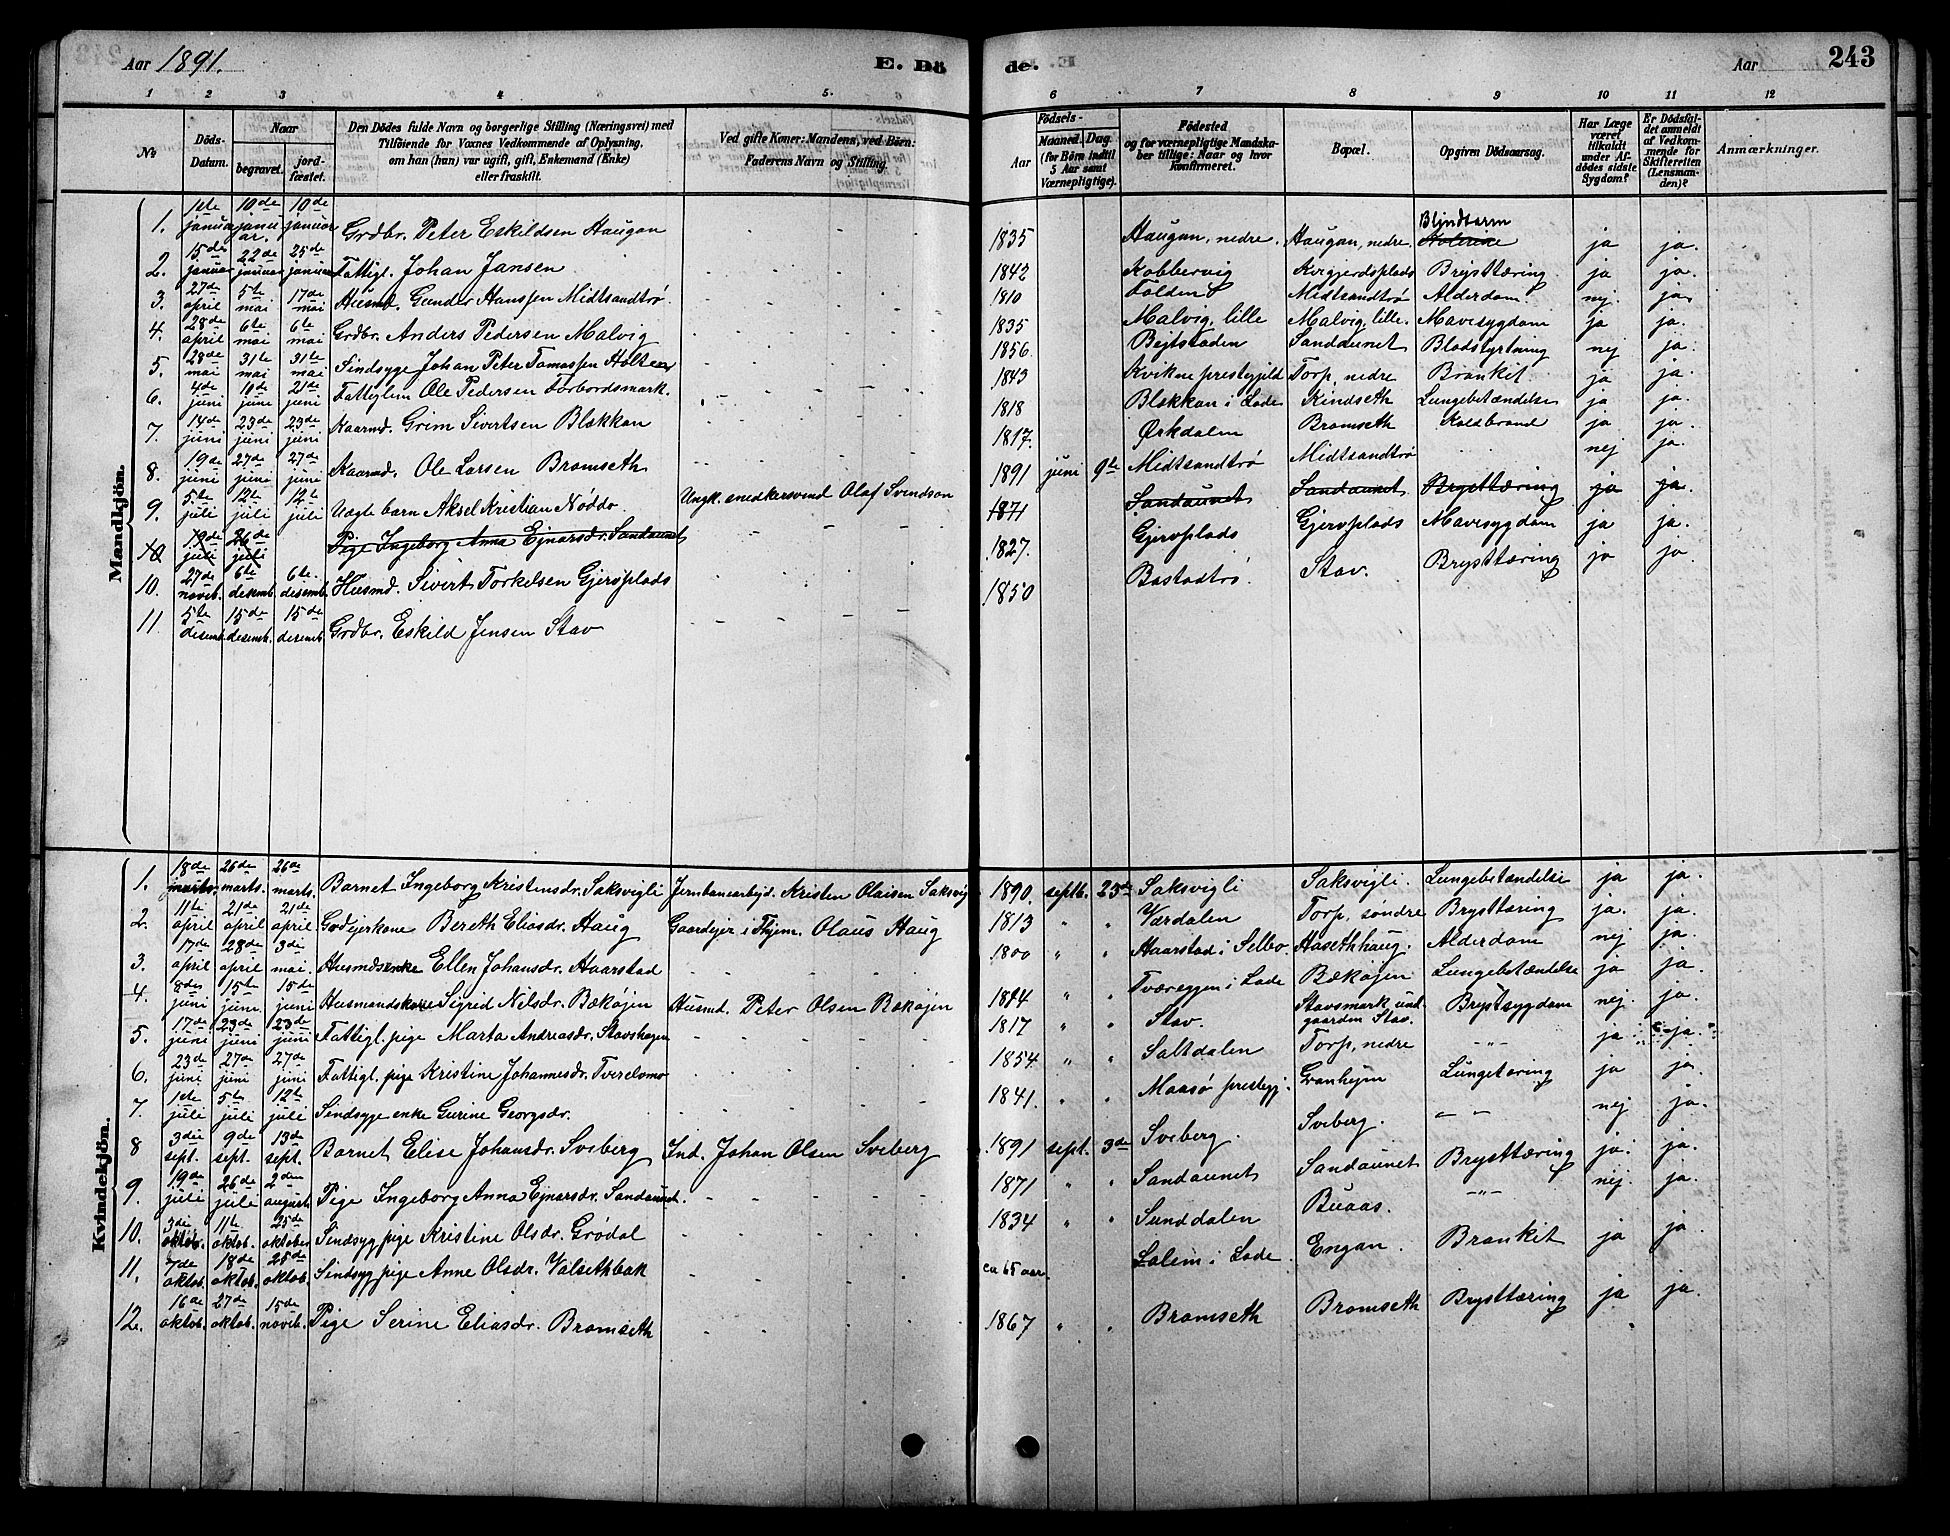 Aar 1891. E. Dö de. Aar 243
1 2 3 4 5. 6 7 8 9 10 11 12
№ Döds-Datum. Naar begravet. jordfæstet. Den Dödes fulde Navn og borgerlige Stilling (Næringsvei) med Tilföiende for Voxnes Vedkommende af Oplysning, om han (hun) var ugift, gift, Enkemand (Enke) eller fraskilt. Ved gifte Koner: Mandens, ved Börn: Faderens Navn og Stilling. Aar Födsels- Maaned. Dag. (for Börn indtil 5 Aar samt Værnepligtige). Födested og for værnepligtige Mandskaber tillige: Naar og hvor konfirmeret. Bopæl. Opgiven Dödsaarsag. Har Læge været tilkaldt under Afdödes sidste Sygdom? Er Dödsfaldet anmeldt af Vedkommende for Skifteretten (Lensmanden)? Anmærkninger.
Mandkjön.
1. 1ste januar 10de januar. 10de januar Grdbr. Peter Eskildsen Haugan 1835 Haugan, nedre. Haugan, nedre. Blindtarm ja ja.
2. 15de januar 22de januar 25de januar Fattigl. Johan Jansen - - - 1842 Kobbervig Kirgjerdsplads Brysttæring. ja ja.
3. 27de april 5te mai 17de mai Husmd. Gunder Hanssen Midtsandtrø. - - - 1810 Folden Midtsandtrø Alderdom. nej. ja.
4. 28de april 6te mai 6te mai Grdbr. Anders Pedersen Malvig - - - 1835 Malvig, lille Malvig, lille. Mavesygdom ja ja.
5. 28de mai 31te mai 31te mai Sindsyge Johan Peter Tomassen Holteen - - - 1856. Bejtstaden Sandaunet Blodstyrtning nej ja.
6. 4de juni 10de juni 21de juni Fattiglem Ole Pedersen Forbordsmark. - - - 1843 Kvikne prestegjeld Torp, nedre Bronkit. ja ja.
7. 14de juni 23de juni 23de juni Kaarmd. Grim Sivertsen Blekkan - - - 1818 Blekkan i Lade Kindseth Lungebetændelse ja ja.
8. 19de juni 27de juni 27de juni Kaarmd. Ole Larsen Bromseth - - - 1817. Ørkdalen Bromseth Koldbrand ja ja.
9. 5te juli 12te juli 12te juli Uægte barn Aksel Kristian Nøddo. Ungk. snedkersvend Olaf Svendson 1891 juni 9de Midtsandtrø Midtsandtrø nej ja.
10 19de juli 26de juli Pige Ingeborg Anna Ejnarsdr. Sandaunet - - - 1871 Sandaunet Sandaunet Brysttæring ja ja.
10. 27de novb. 6te desemb. 6te desemb. Husmd. Sivert Torkelsen Gjervplads - - - 1827. Gjervplads Gjervplads Mavesygdom ja ja.
11. 5te desemb. 15de desemb. 15de desemb. Grdbr. Eskild Jensen Stav - - - 1850 Bostadtrø. Stav. Brysttæring ja ja.
Kvindekjön.
1. 18de marts. 26de marts. 26de marts. Barnet Ingeborg Kristensdr. Saksvigli Jernbanearbejd. Kristen Olaisen Saksvig 1890. septb. 25de Saksvigli Saksvigli. Lungebetændelse ja ja.
2. 11te april 21de april 21de april Gaardejerkone Bereth Eliasdr. Haug Gaardejer i Hjem. Olaus Haug 1813 " " Værdalen Torp, søndre Brysttæring ja. ja.
3. 17de april 28de april 3die mai Husmdsenke Ellen Johansdr. Haarstad - - - 1800 " " Haarstad i Selbo. Hasethhaug. Alderdom nej ja.
4. 8de juni 15te juni 15de juni Husmandskone Sigrid Nilsdr. Bækøjen Husmd. Peter Olsen Bækøjen 1844 " " Tværeggen i Lade Bækøjen Lungebetændelse ja ja.
5. 17de juni 23de juni 23de juni Fattigl. pige Marta Andreasdr. Stavshagen - - - 1817 " " Stav. Stavsmark und gaarden Stav. Brystsygdom nej. ja.
6. 23de juni 27de juni 27de juni Fattigl. pige Kristine Johannesdr. Tverelvmo - - - 1854 " " Saltdalen Torp, nedre -"- ja ja.
7. 1ste juli 5te juli 12te juli Sindsyge enke Gurine Georgsdr. - - - 1841. " " Maasø prestegj. Granhejm Lungetæring ja ja.
8 3die sept. 9de sept. 13de sept. Barnet Elise Johansdr. Sveberg Ind. Johan Olsen Sveberg 1891 sept. 3de Sveberg. Sveberg. - - nej ja.
9. 19de juli 26de juli 2den august Pige Ingeborg Anna Ejnarsdr. Sandaunet. - - - 1871 " " Sandaunet Sandaunet Brysttæring ja. ja.
10. 3die oktob. 11te oktob. 25de oktober Sindsyg pige Kristine Olsdr. Grødal - - - 1834 " " Sunddalen Buaas. -"- nej. ja.
11. 7de oktob. 18de oktob. 25de oktob. Sindsyg pige Anne Olsdr. Valsethbak - - - ca 65 aar. Lolem i Lade. Engan. Bronkit ja ja.
12. 16de oktob. 27de oktob. 15de novb. Pige Serine Eliasdr. Bromseth - - - 1867 " " Bromseth Bromseth Brysttæring ja ja.